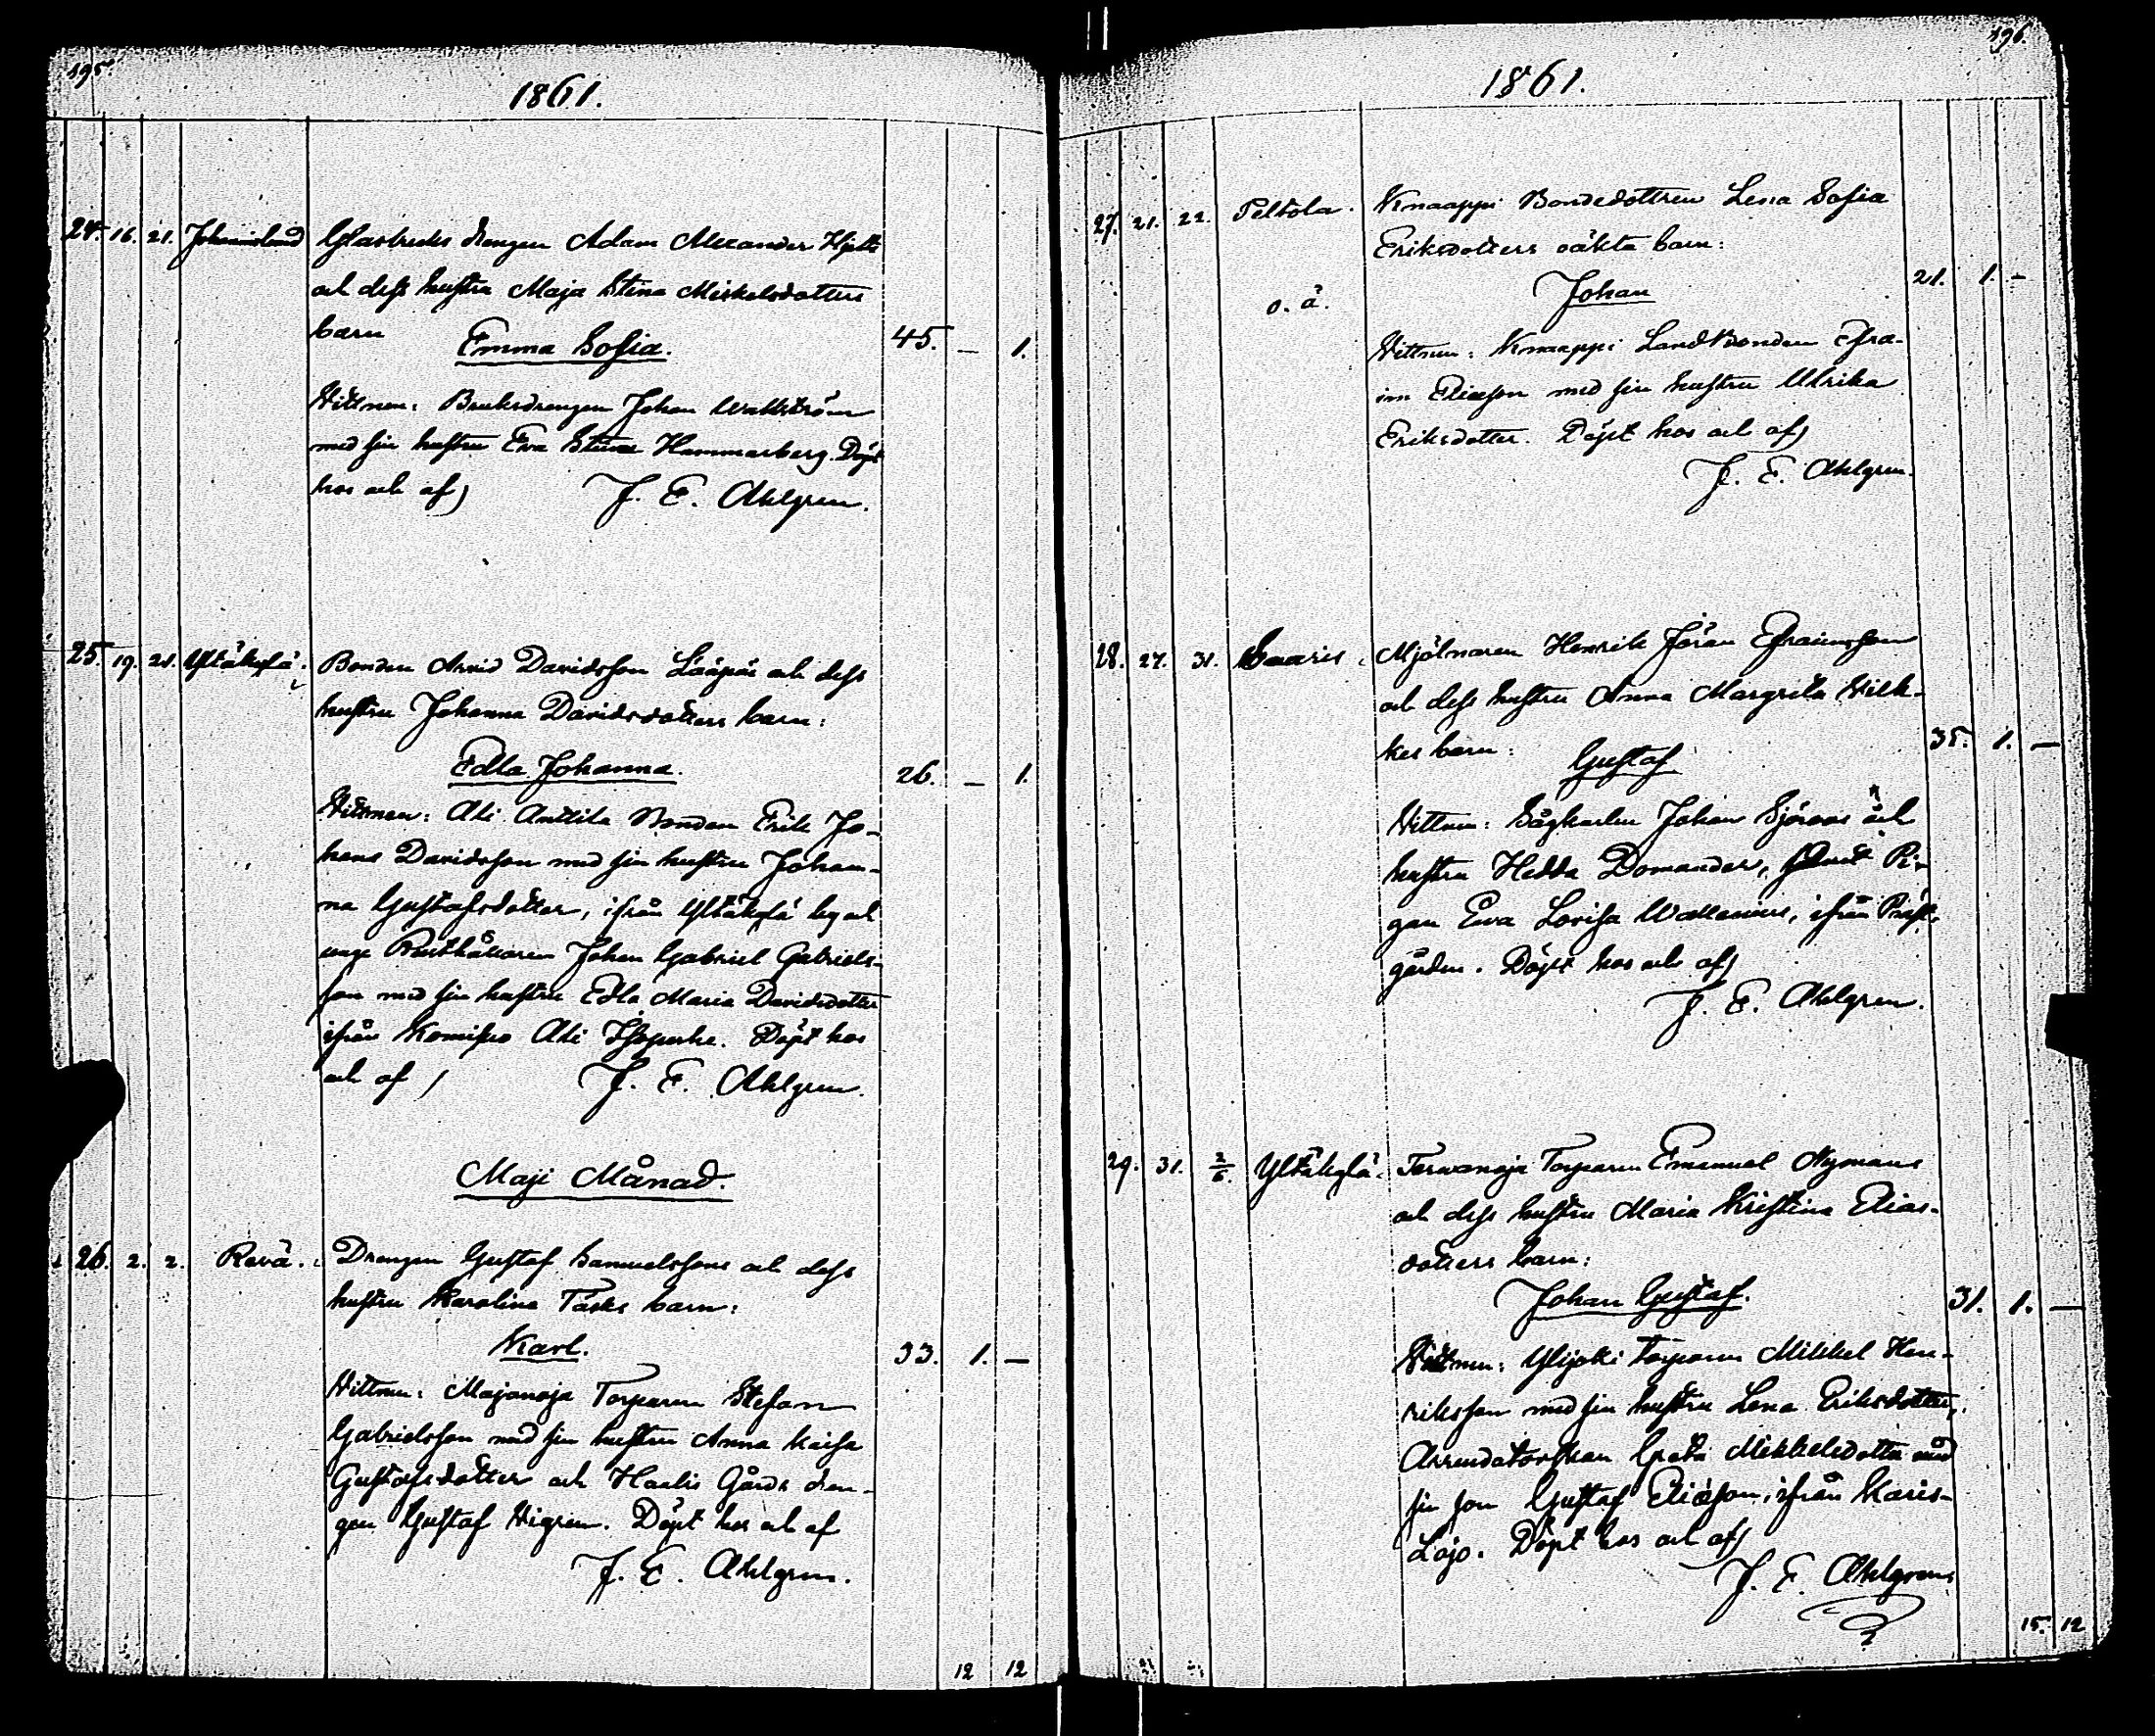 195.
1861.
24. 16. 21. Johannislund Glasbruks drengen Adam Alexander Hjelts
och dess hustru Maja Stina Mickelsdotters
barn
Emma Sofia.
45. — 1.
Vittnen: Bruksdrengen Johan Wallström
med sin hustru Eva Stina Hammarberg. Döpt
hos och af)
J. E. Ahlgren.
25. 19. 21. Yltäkylä. Bonden Arvid Davidsson Lääpäs och dess
hustru Johanna Davidsdotters barn:
Edla Johanna.
26. — 1.
Vittnen: Ali Anttila Bonden Erik Jo-
hans Davidsson med sin hustru Johan-
na Gustafsdotter, ifrån Yltäkylä by och
unge Rusthållaren Johan Gabriel Gabriels-
son med sin hustru Edla Maria Davidsdotter
ifrån Komisuo Ali Isoperhe. Döpt hos
och af)
J. E. Ahlgren.
Maji Månad.
26. 2. 2. Revä. Drengen Gustaf Samuelssons och dess
hustru Karolina Täcks barn:
Karl.
33. 1. —
Vittnen: Majanoja Torparen Stefan
Gabrielsson med sin hustru Anna Kaisa
Gustafsdotter och Haalis Gårds dren-
gen Gustaf Wigren. Döpt hos och af
J. E. Ahlgren.
12 12
196.
1861.
27. 21. 22. Peltola. Knaappi Bondedottren Lena Sofia
Eriksdotters oäkta barn:
o. ä.
Johan
21. 1. —
Vittnen: Knaappi Landbonden Efra-
im Eliasson med sin hustru Ulrika
Eriksdotter. Döpt hos och af)
J. E. Ahlgren.
28. 27. 31. Saaris. Mjölnaren Henrik Jöran Efraimsson
och dess hustru Anna Margreta Wilk-
kes barn:
Gustaf
35. 1. —
Vittnen: Sågkarlen Johan Sjöroos och
hustru Hedda Domander, samt Pi-
gan Ewa Lovisa Wallenius, ifrån Prest-
gården. Döpt hos och af)
J. E. Ahlgren.
29. 31. 2/6. Yltäkylä. Tervanoja Torparen Emanuel Nymans
och dess hustru Maria Kristina Elias-
dotters barn:
Johan Gustaf.
31. 1. —
Vittnen: Ylijoki Torparen Mikkel Hen-
riksson med sin hustru Lena Eriksdotter,
Arrendatorskan Greta Mikkelsdotter med
sin son Gustaf Eliasson, ifrån Karis-
Lojo. Döpt hos och af)
J. E. Ahlgren
15. 12